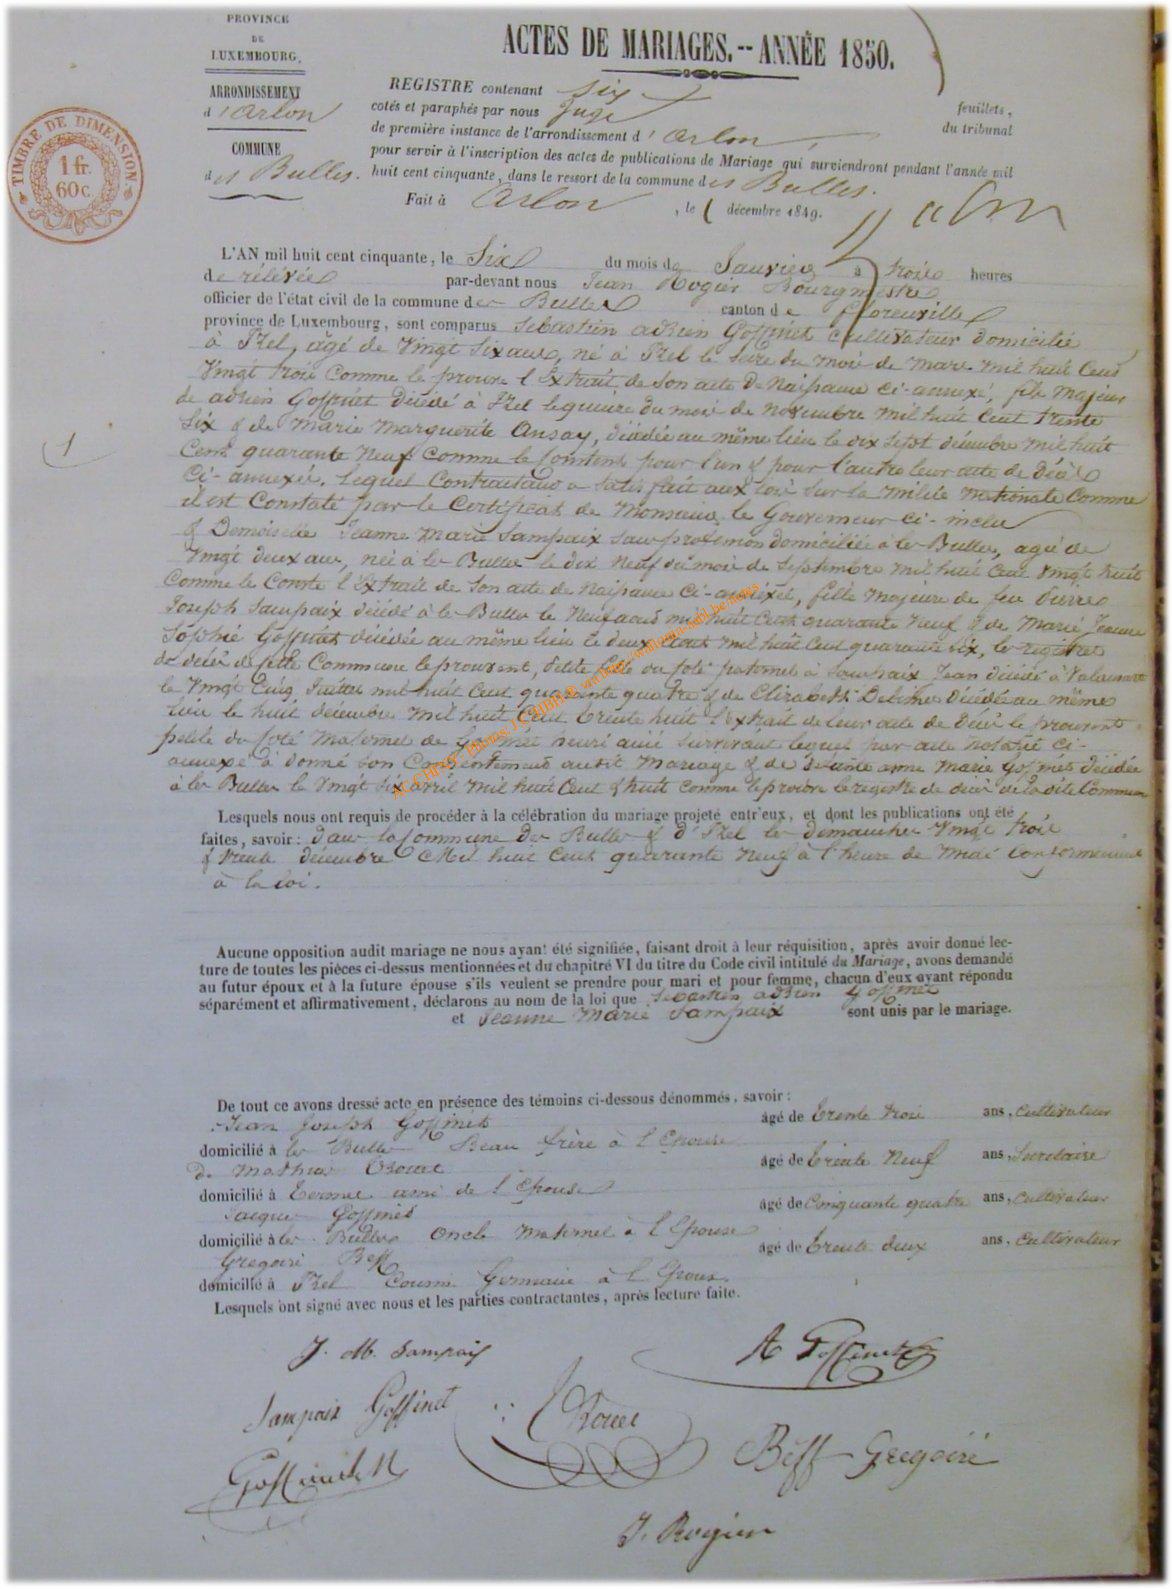 PROVINCE
DE
LUXEMBOURG.
ARRONDISSEMENT
d'Arlon
COMMUNE
des Bulles.
TIMBRE DE DIMENSION
1 fr.
60 c.
ACTES DE MARIAGES.-- ANNÉE 1850.
REGISTRE contenant Six feuillets,
cotés et paraphés par nous Juge du tribunal
de première instance de l'arrondissement d'Arlon,
pour servir à l'inscription des actes de publications de Mariage qui surviendront pendant l'année mil
huit cent cinquante, dans le ressort de la commune des Bulles.
Fait à Arlon, le 1 décembre 1849.
1
L'AN mil huit cent cinquante, le Six du mois de Janvier à trois heures
de rélévée par-devant nous Jean Rogier Bourgmestre
officier de l'état civil de la commune des Bulles canton de Florenville
province de Luxembourg, sont comparus Sébastien adrien Goffinet cultivateur domicilié
à Izel, agé de Vingt Six ans, né à Izel le seize du mois de Mars mil huit Cent
Vingt trois Comme le prouve l'Extrait de Son acte de Naissance Ci-annexé, fils Majeur
de adrien Goffinet décédé à Izel le quinze du mois de novembre mil huit Cent trente
Six & de Marie Marguerite Ansay, décédée au même lieu le dix sept décembre mil huit
Cent quarante Neuf Comme le pour l'un & pour l'autre leur acte de décès
Ci-annexé. Lequel Contractant a satisfait aux lois sur la Milice Nationale Comme
il est Constaté par le Certificat de Monsieur le Gouverneur Ci-inclu
& Demoiselle Jeanne Marie Sampaix Sans profession domiciliée à les Bulles, agée de
Vingt deux ans, née à les Bulles le dix Neuf du mois de Septembre mil huit Cent Vingt huit
Comme le Conste l'Extrait de Son acte de Naissance Ci-annexée, fille Majeure de feu Pierre
Joseph Sampaix décédé à les Bulles le Neuf aout mil huit Cent quarante Neuf & de Marie Jeanne
Sophie Goffinet décédée au même lieu le deux aout mil huit Cent quarante six, les registres
de décès de cette Commune le prouvent, petite fille du coté paternel à Sampaix Jean décédé à Valansart
le Vingt Cinq mil huit Cent quarante quatre & de Elizabeth décédée au même
lieu le huit décembre mil huit Cent trente huit l'extrait de leur acte de décès le prouvent
petite du coté Maternel de Goffinet henri survivant lequel par acte notarié ci-
annexé à donné son Consentement audit Mariage & de défunte anne Marie Goffinet décédée
à les Bulles le Vingt Six avril mil huit Cent & huit comme le prouve le registre de décès de la dite Commune
Lesquels nous ont requis de procéder à la célébration du mariage projeté entr'eux, et dont les publications ont été
faites, savoir: dans la Commune des Bulles & d'Izel les dimanches Vingt trois
& trente décembre Mil huit Cent quarante Neuf à l'heure de Midi Conformément
à la loi.
Aucune opposition audit mariage ne nous ayant été signifiée, faisant droit à leur réquisition, après avoir donné lec-
ture de toutes les pièces ci-dessus mentionnées et du chapitre VI du titre du Code civil intitulé du Mariage, avons demandé
au futur époux et à la future épouse s'ils veulent se prendre pour mari et pour femme, chacun d'eux ayant répondu
séparément et affirmativement, déclarons au nom de la loi que Sébastien adrien Goffinet
et Jeanne Marie Sampaix sont unis par le mariage.
De tout ce avons dressé acte en présence des témoins ci-dessous dénommés, savoir:
Jean Joseph Goffinet âgé de trente trois ans, Cultivateur
domicilié à les Bulles Beau frère à l'Epouse
de Mathieu âgé de trente Neuf ans, Secrétaire
domicilié à Termes ami de l'épouse
Jacques Goffinet âgé de Cinquante quatre ans, Cultivateur
domicilié à les Bulles Oncle Maternel à l'Epouse
Gregoire Beff âgé de trente deux ans, Cultivateur
domicilié à Izel Cousin Germain à l'Epoux.
Lesquels ont signé avec nous et les parties contractantes, après lecture faite.
J. M. Sampaix
A Goffinet
Sampaix Goffinet
Beff Gregoire
J. Rogier